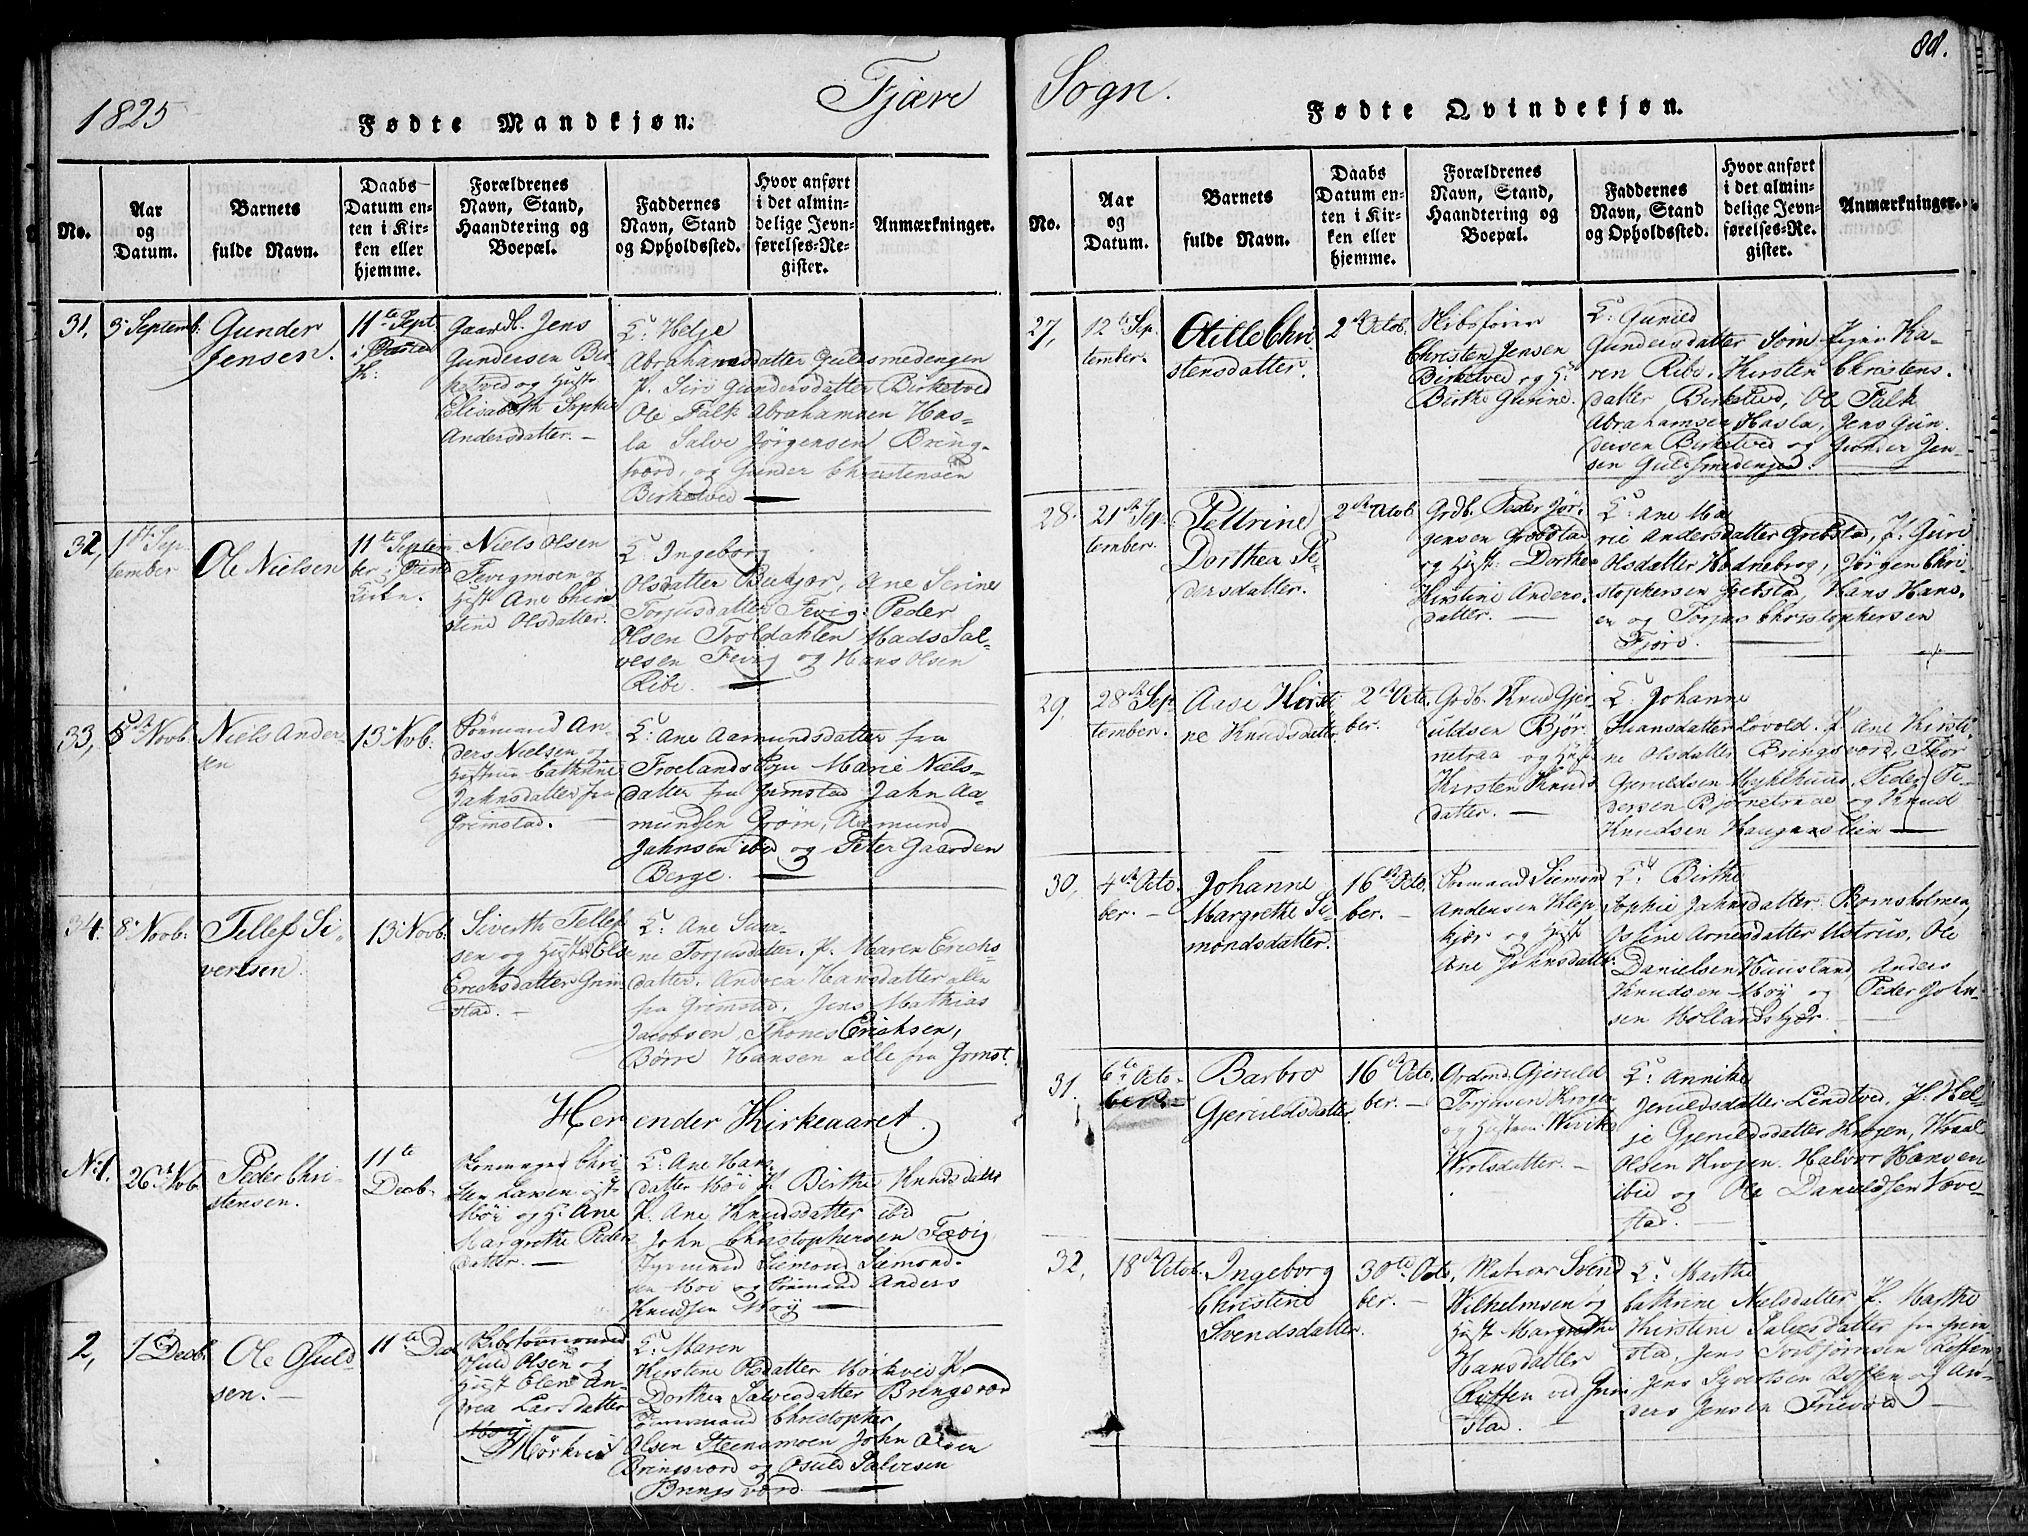 1825
Fjære
Fødte Mandkjøn.
No.
Aar
og
Datum.
Barnets
fulde Navn.
Daabs
Datum en-
ten i Kir-
ken eller
hjemme.
Forældrenes
Navn, Stand,
Haandtering og
Boepæl.
Faddernes
Navn, Stand
og Opholdssted.
Hvor anført
i det almin-
delige Jevn-
førelses-Re-
gister.
Anmærkninger.
31,
3 Septemb:
Gunder
Jensen.
11te Sept.
Gaardb. Jens
Gundersen Bir-
ketved og Hustr
Elisabeth Sophie
Andersdatter. —
Helje
Abrahamsdatter Guldsmedengen
P. Siri Gundersdatter Birketved
Ole Falk Abrahamsen Has-
la Salve Jørgensen Brings-
værd, og Gunder Christensen
Birketved —
32,
1st Sep-
tember
Ole Nielsen
11te Septem-
ber i
Kirke.
Niels Olsen
Fevigmoen og
Hust. Ane Chir-
stine Olsdatter.
Ingeborg
Olsdatter Bukjær, Ane Serine
Torjusdatter Fevig: Peder
Olsen Troldahlen Mads Sal-
vesen Fevig og Hans Olsen
Ribe. —
33,
5te Novb.
Niels Ander-
sen
13 Novb:
Sømand An-
ders Nielsen og
Hustrue Cathrine
Jahnsdatter fra
Grimstad. —
Ane Aamundsdatter fra
Froelands Sogn Marie Niels-
datter fra Grimstad Jahn Aa-
mundsen Grøm, Aamund
Jahnsen ibid og Peter Gaarden
Berge. —
34.
8 Novb:
Tellef Si-
vertsen.
13 Novb:
Siverth Tellef-
sen og Hustr Else
Erichsdatter Grim-
stad. —
Ane Susa-
ne Torjusdatter. P. Maren Erichs-
datter. Andrea Hansdatter alle
fra Grimstad, Jens Mathias
Jacobsen Thones Erichsen,
Børre Hansen alle fra Grmst.
Her ender Kirkeaaret.
No 1.
26t Nvb.
Peder Chri-
stensen.
11te
Decb.
Chri-
sten Larsen
Møi og H. Ane
Margrethe Peders
datter. —
Ane Hans
datter Møi P. Birthe Knudsdatter
P. Ane Knudsdatter ibid
John Christophersen Fævig,
Siemond Siemond-
sen Moi og Sømand Anders
Knudsen Møy —
2,
1 Decb.
Ole Osuld-
sen. —
11te Decb
Osuld Olsen og
Hust Elen An-
drea Larsdatter
Mørkved
Maren
Kirstine Olsdatter Mørkved P.
Dorthea Salvesdatter Bringsværd
Tømmermand Christopher
Olsen Steensmoen John Olsen
Bringsværd og Osuld Salvesen
Bringsværd. —
Sogn.
88.
Fødte Qvindekjøn.
No.
Aar
og
Datum.
Barnets
fulde Navn.
Daabs
Datum en-
ten i Kir-
ken eller
hjemme.
Forældrenes
Navn, Stand,
Haandtering og
Boepæl.
Faddernes
Navn, Stand
og Opholdssted.
Hvor anført
i det almin-
delige Jevn-
førelses-Re-
gister.
Anmærkninger.
27,
12te Sep-
tember.
Otille Chri-
stensdatter.
2 Octob.
Skibsfører
Christen Jensen
Birketved og H.
Birthe Gurine.
Gunild
Gundersdatter Søm Pigen Ka-
ren Ribe, Kirsten Christens-
datter Birketved, Ole Falk
Abrahamsen Hasla, Jens Gun-
dersen Birketved og Gunder Jen-
sen Guldsmedengen.
28.
21st Sep-
tember.
Pettrine
Dorthea Pe-
dersdatter.
2 Octob.
Grdb. Peder Jør-
gensen Grøbstad
og Hust: Dorthe
Kirstine Anders-
datter. —
Ane Ma-
rie Andersdatter Grebstad, P. Guri
Olsdatter Hodnebrog, Jørgen Chri-
stophersen Grebstad, Hans Hans-
en og Torjus Christophersen
Fjære. —
29,
28de Sep-
tember.
Aase Kirsti-
ne Knudsdatter
2 Octo-
ber.
Grdb. Knud Gjer-
uldsen Bjør-
netraa og Hust
Kirsten Knuds-
datter. —
Johanne
Hansdatter Lovold. P. Ane Kirsti-
ne Olsdatter Bringsværd, Thor
Gjeruldsen Myklhuus, Peder Pe-
dersen Bjørnetraae og Knud
Knudsen Haugenslien —
30,
4de Octo-
ber. —
Johanne
Margrethe Si-
mondsdatter.
16de Octo-
ber. —
Sømand Siemond
Andersen Klep-
kjær og Hust
Ane Johnsdatter
Birthe
Sophie Jahnsdatter Bomsholmen,
Arnesdatter Ole
Danielsen Hausland, Anders
Knudsen Møy og Peder John-
sen Hollandskjær. —
31.
6te Octo-
ber
Barbro
Gjeruldsdatter.
16de Octo-
ber. —
Gjeruld
Torjusen Krogen
og Hustrue
Wrolsdatter. —
Annike
Jeruldsdatter Lindtved, P. Hel-
je Gjeruldsdatter Krogen, Wraal
Olsen Krogen. Halvor Hansen
ibid og Ole Danieldsen Væve-
stad. —
32,
18de Octob.
Ingeborg
Christine
Svendsdatter.
30te Octo-
ber. —
Matros Svend
Wilhelmsen og
Hust Margrethe
Hansdatter
Roffen ved Grim-
stad.
Marthe
Cathrine Nielsdatter P. Marthe
Kirstine Salvesdatter fra Grim-
stad, Jens Torbjørnsen Roffen
Jens Syvertsen Roffen og An-
ders Jensen Frievold —